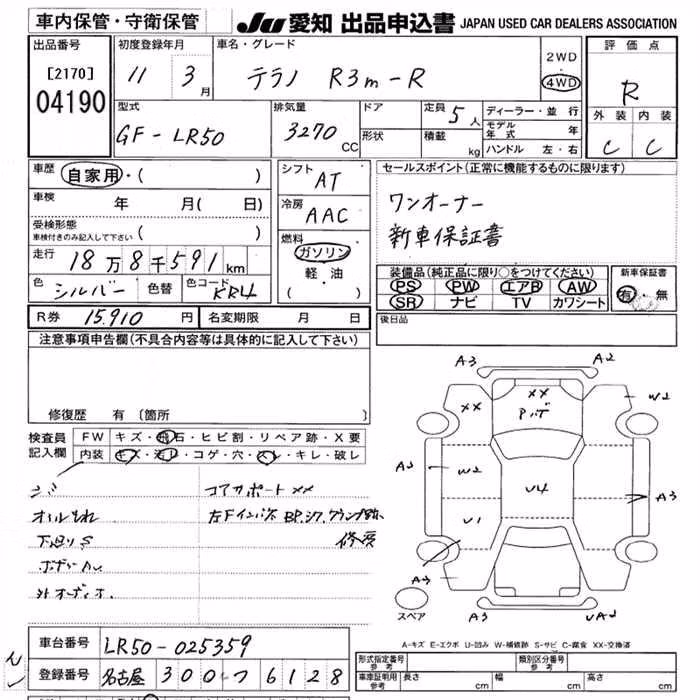 車内保管・守衛保管 JU 愛知 出品申込書 JAPAN USED CAR DEALERS ASSOCIATION
出品番号 初度登録年月 車名・グレード 2WD 評価点
[2170] 11 3月 テラノ R3m-R 4WD R
04190
型式 排気量 ドア 定員 5人 ディーラー・並行 外装 内装
GF-LR50 3270 CC 形状 積載 kg モデル年式 年 C C
ハンドル 左・右
車歴 自家用・( ) シフト AT セールスポイント(正常に機能するものに限ります)
車検 年 月( 日) 冷房 AAC ワンオーナー
受検形態 新車保証書
車検付きのみ記入して下さい ( ) 燃料
走行 18万8千591km ガソリン 装備品(純正品に限り○をつけてください) 新車保証書
軽・油 PS PW エアB AW 有・無
色 シルバー 色替 色コード KR4 ( ) SR ナビ TV カワシート
R券 15,910円 名変期限 月 日 後日品
注意事項申告欄(不具合内容等は具体的に記入して下さい)
修復歴 有(箇所
A3 A2
XX XX W2
Pバずん
A2 W2 U4 A3
U1
A3
スペア A3 UA2
検査員 FW キズ・飛石・ヒビ割・リペア跡・X要
記入欄 内装 キズ・汚レ・コゲ・穴・スレ・キレ・破レ
コアサポートXX
下廻りS 修戻
A-キズ E-エクボ U-凹み W-補修跡 S-サビ C-腐食 XX-交換済
車台番号 LR50-025359
登録番号 名古屋 300 つ 6128
形式指定番号 参考 類別区分番号 参考
車庫証明用 参考 長さ cm 幅 cm 高さ cm